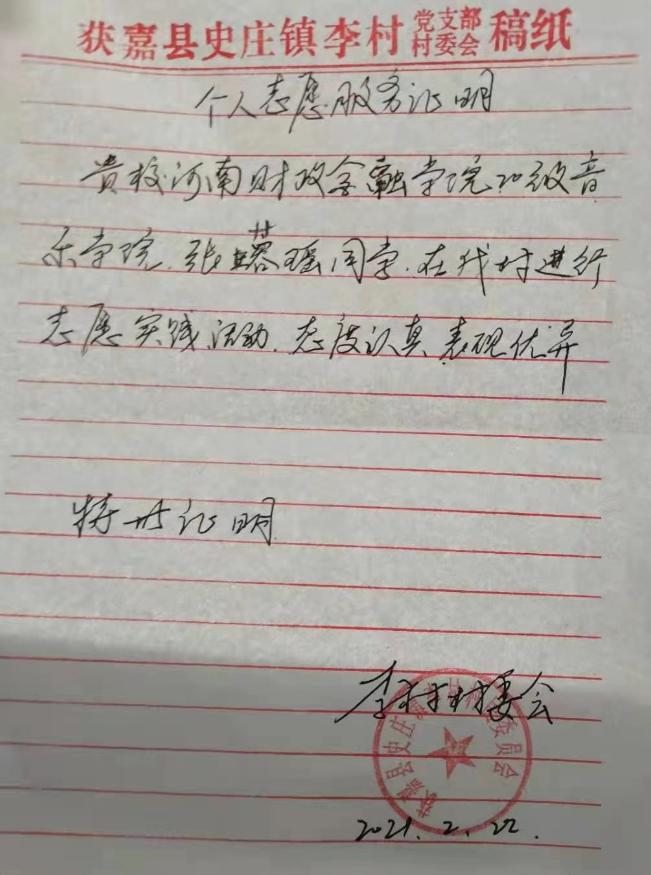 获嘉县史庄镇李村党支部村委会稿纸
个人志愿服务证明
贵校河南财政金融学院20级音
乐学院.张蓉瑶同学.在我村进行
志愿实践活动.态度认真表现优异
特此证明
李村村委会
获嘉县史庄镇李村村民委员会
2021.2.22.